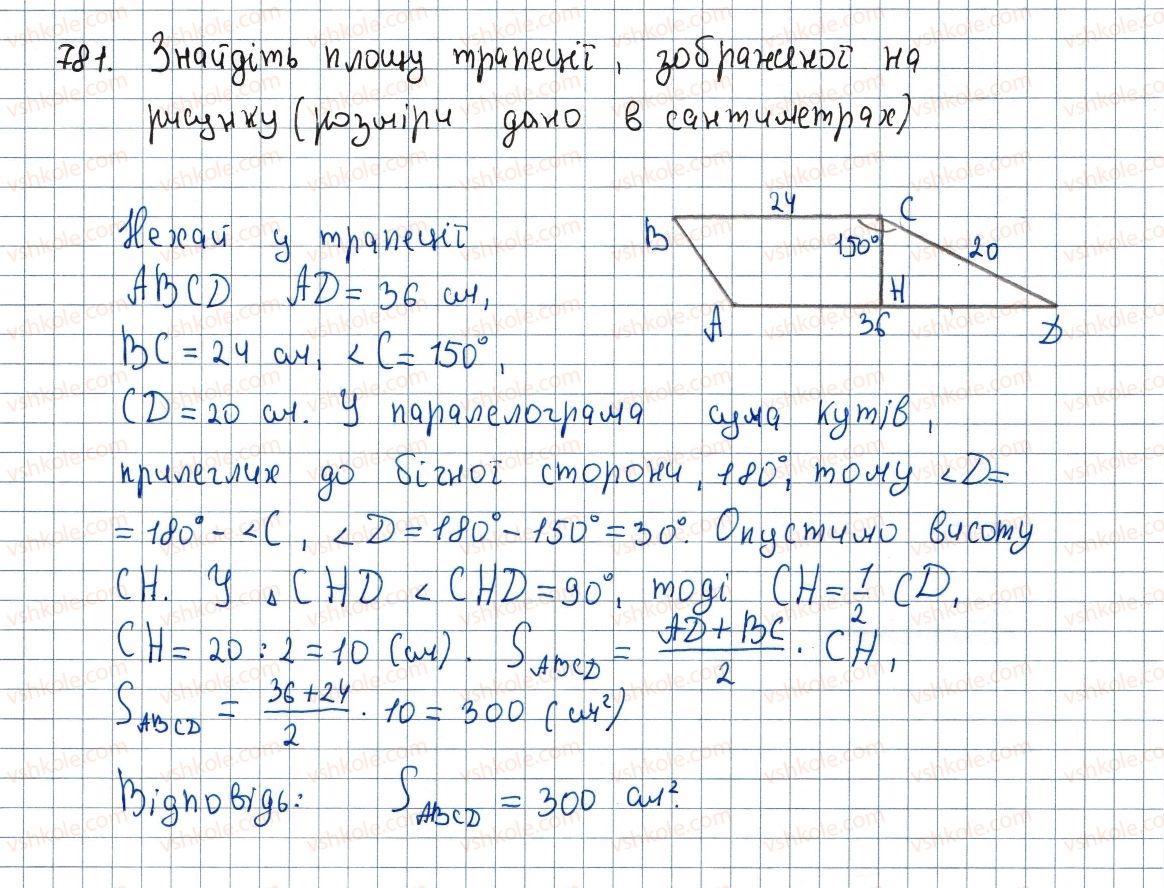 781. Знайдіть площу трапеції, зображеної на
рисунку (розміри дано в сантиметрах)
Нехай у трапеції
ABCD AD = 36 см,
BC = 24 см, < C = 150°,
CD = 20 см. У паралелограма сума кутів,
прилеглих до бічної сторони, 180°, тому < D =
= 180° - < C, < D = 180° - 150° = 30°. Опустимо висоту
CH. У △ CHD < CHD = 90°, тоді CH = 1/2 CD,
CH = 20 : 2 = 10 (см). S ABCD = (AD + BC)/2 · CH,
S ABCD = (36 + 24)/2 · 10 = 300 (см²)
Відповідь: S ABCD = 300 см².
24
B
C
150°
20
H
A
36
D
vshkole.com